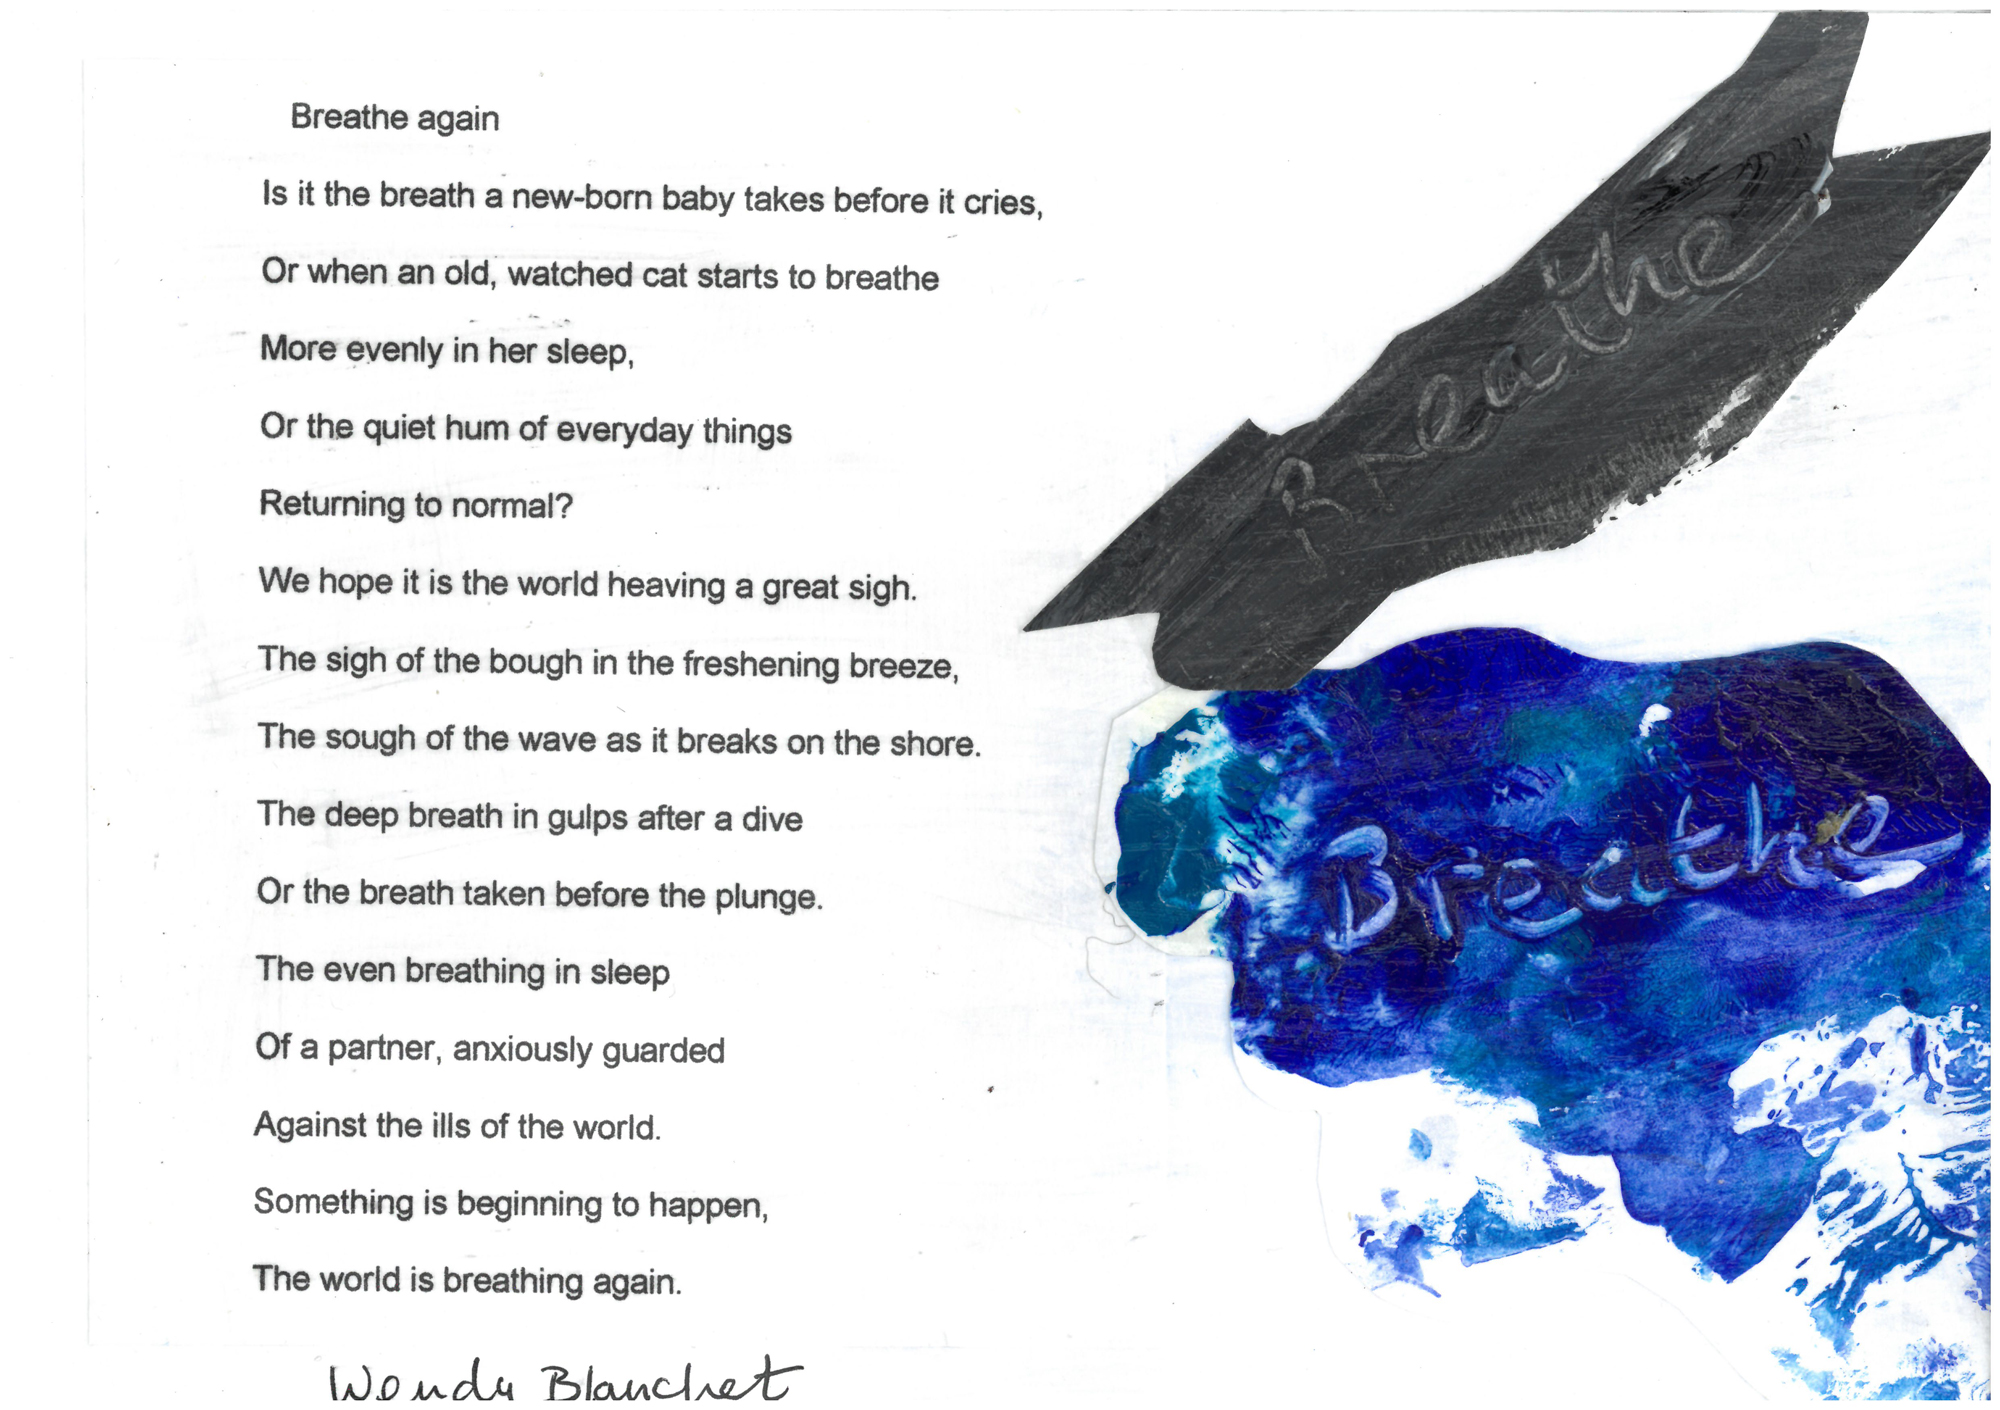 Breathe again
Is it the breath a new-born baby takes before it cries,
Or when an old, watched cat starts to breathe
More evenly in her sleep,
Or the quiet hum of everyday things
Returning to normal?
We hope it is the world heaving a great sigh.
The sigh of the bough in the freshening breeze,
The sough of the wave as it breaks on the shore.
The deep breath in gulps after a dive
Or the breath taken before the plunge.
The even breathing in sleep
Of a partner, anxiously guarded
Against the ills of the world.
Something is beginning to happen,
The world is breathing again.
Wendy Blanchet
Breathe
Breathe